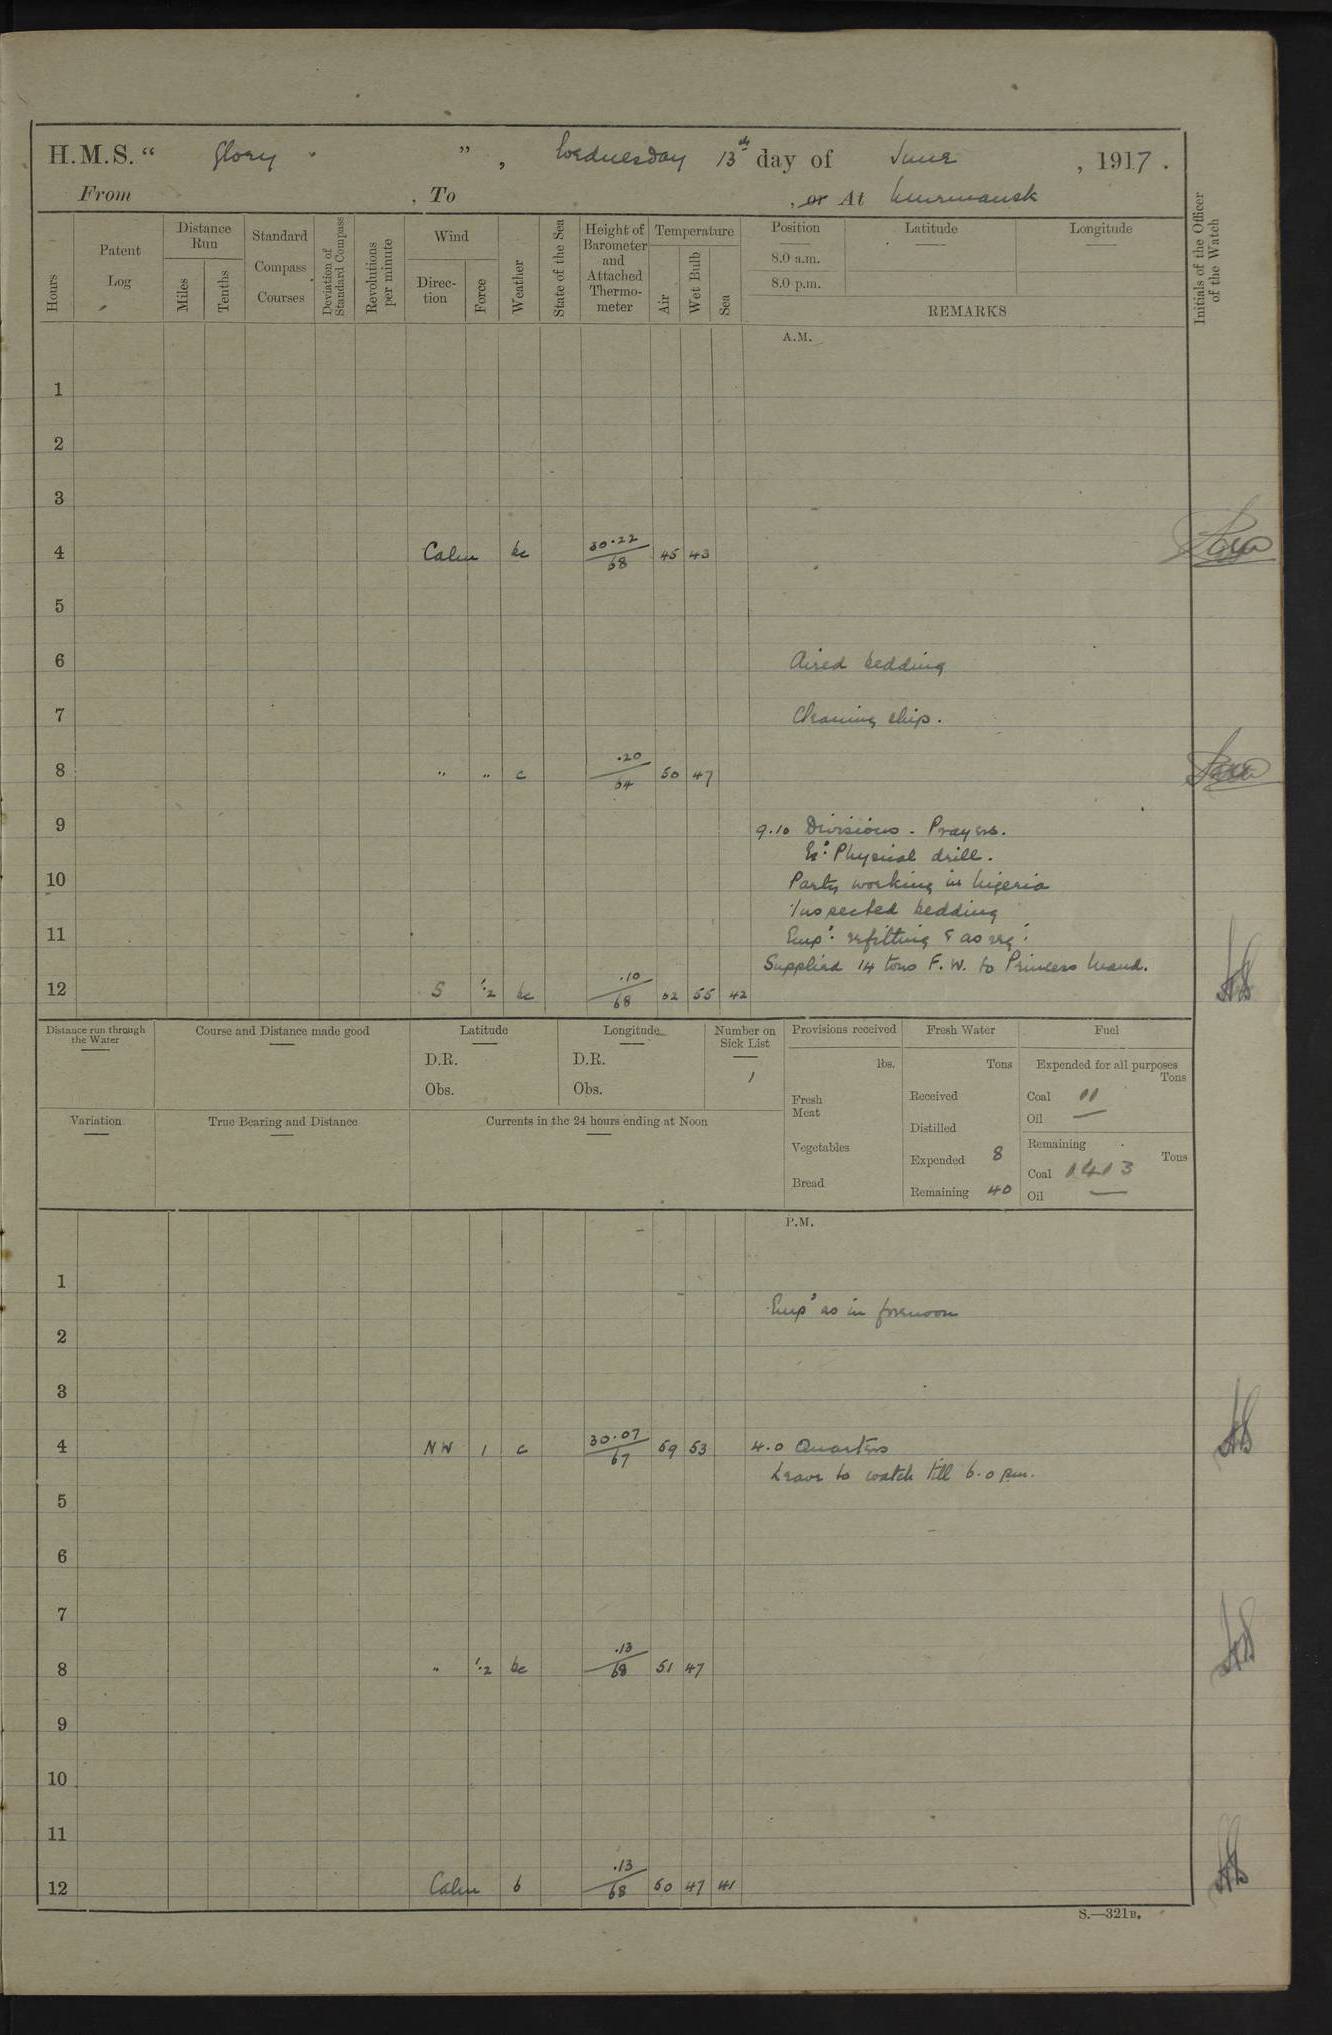 H.M.S. " Glory " , Wednesday 13th day of June , 1917 .
From , To , or At Murmansk
Hours
Patent Log
Distance Run
Miles
Tenths
Standard Compass Courses
Deviation of Standard Compass
Revolutions per minute
Wind
Direction
Force
Weather
State of the Sea
Height of Barometer and Attached Thermometer
Temperature
Air
Wet Bulb
Sea
Position
8.0 a.m.
8.0 p.m.
Latitude
Longitude
REMARKS
Initials of the Officer of the Watch
A.M.
1
2
3
4 Calm bc 30.22/68 45 43
5
6 Aired bedding
7 Cleaning ship.
8 " " c .20/64 50 47
9 9.10 Divisions - Prayers.
Ex: Physical drill.
10 Party working in Nigeria
Inspected bedding
11 Emp: refitting & as req:
Supplied 14 tons F.W. to Princess Maud.
12 S 1.2 bc .10/68 62 55 42
Distance run through the Water
Course and Distance made good
Latitude
D.R.
Obs.
Longitude
D.R.
Obs.
Number on Sick List
1
Variation
True Bearing and Distance
Currents in the 24 hours ending at Noon
Provisions received
lbs.
Fresh Meat
Vegetables
Bread
Fresh Water
Tons
Received
Distilled
Expended 8
Remaining 40
Fuel
Expended for all purposes
Tons
Coal 11
Oil —
Remaining
Tons
Coal 1413
Oil —
P.M.
1
Emp: as in forenoon
2
3
4 NW 1 c 30.07/67 59 53 4.0 Quarters
Leave to watch till 6.0 pm.
5
6
7
8 " 1.2 bc .13/68 51 47
9
10
11
12 Calm b .13/68 50 47 41
S.—321B.